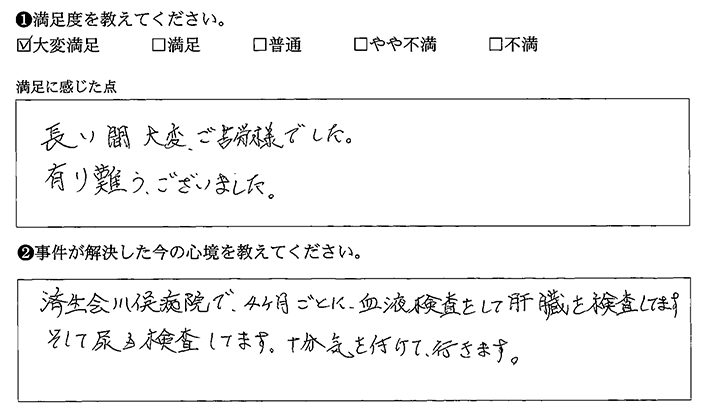 ❶満足度を教えてください。
☑大変満足 □満足 □普通 □やや不満 □不満
満足に感じた点
長い間大変、ご苦労様でした。
有り難う、ございました。
❷事件が解決した今の心境を教えてください。
済生会川俣病院で、4ヶ月ごとに、血液検査をして肝臓を検査してます
そして尿も検査してます。十分気を付けて、行きます。